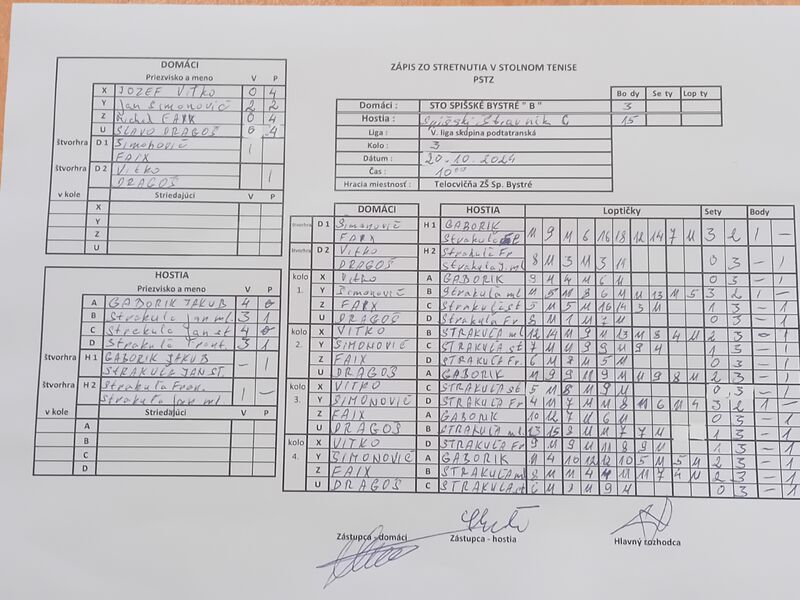 DOMÁCI
Priezvisko a meno V P
X JOZEF VITKO 0 4
Y Jan Simonovič 2 2
Z Michel FAIX 0 4
U SLAVO DRAGOŠ 0 4
štvorhra D 1 Simonovič 1
FAIX
štvorhra D 2 Vitko 1
DRAGOŠ
v kole Striedajúci
X
Y
Z
U
HOSTIA
Priezvisko a meno V P
A GABORIK JAKUB 4 0
B Strakula Jan ml. 3 1
C Strakula Jan st 4 0
D Strakula Frant. 3 1
štvorhra H 1 GABORIK JAKUB — 1
STRAKULA JAN ST
štvorhra H 2 Strakula Fran. 1 —
Strakula Jan ml.
v kole Striedajúci
A
B
C
D
ZÁPIS ZO STRETNUTIA V STOLNOM TENISE
PSTZ
Bo dy Se ty Lop ty
Domáci : STO SPIŠSKÉ BYSTRÉ " B " 3
Hostia : Spišský Štiavnik C 15
Liga : V. liga skupina podtatranská
Kolo : 3
Dátum : 20.10.2024
Čas : 10 00
Hracia miestnosť : Telocvičňa ZŠ Sp. Bystré
DOMÁCI HOSTIA Loptičky Sety Body
štvorhra D 1 Simonovič H 1 GABORIK
FAIX Strakula 11 9 11 6 16 18 12 14 7 11 3 2 1 —
štvorhra D 2 Vitko H 2 Strakula Fr
DRAGOŠ Strakula J. ml 8 11 3 11 3 11 0 3 — 1
kolo 1. X Vitko A GABORIK 9 11 4 11 6 11 0 3 — 1
Y Simonovič B Strakula ml 11 5 11 8 6 11 11 13 11 5 3 2 1 —
Z FAIX C Strakula st 5 11 5 11 16 14 3 11 1 3 — 1
U DRAGOŠ D Strakula Fr 8 11 1 11 7 11 0 3 — 1
kolo 2. X VITKO B STRAKULA ml 12 14 11 9 11 13 11 8 4 11 2 3 — 1
Y SIMONOVIČ C STRAKULA st 7 11 11 9 9 11 9 4 1 3 — 1
Z FAIX D STRAKULA Fr 6 11 7 11 5 11 0 3 — 1
U DRAGOŠ A GABORIK 11 9 9 11 9 11 11 9 8 11 2 3 — 1
kolo 3. X VITKO C STRAKULA st 5 11 8 11 9 11 0 3 — 1
Y SIMONOVIČ D STRAKULA Fr 4 11 7 11 11 8 11 6 11 4 3 2 1 —
Z FAIX A GABORIK 10 12 7 11 6 11 0 3 — 1
U DRAGOŠ B STRAKULA ml 13 15 8 11 11 7 7 11 1 3 — 1
kolo 4. X VITKO D STRAKULA Fr 9 11 9 11 11 8 9 11 1 3 — 1
Y SIMONOVIČ A GABORIK 11 4 10 12 12 10 5 11 5 11 2 3 — 1
Z FAIX B STRAKULA ml 8 11 11 4 4 11 11 7 4 11 2 3 — 1
U DRAGOŠ C STRAKULA st 6 11 9 11 0 3 — 1
Zástupca - domáci Zástupca - hostia Hlavný rozhodca